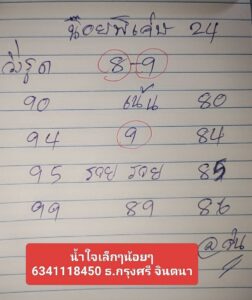 น้อยพิเศษ 24
วิ่งรูด 8-9
90 เน้น 80
94 9 84
95 รวย รวย 85
99 89 86
น้ำใจเล็กๆน้อยๆ
6341118450 ธ.กรุงศรี จินตนา